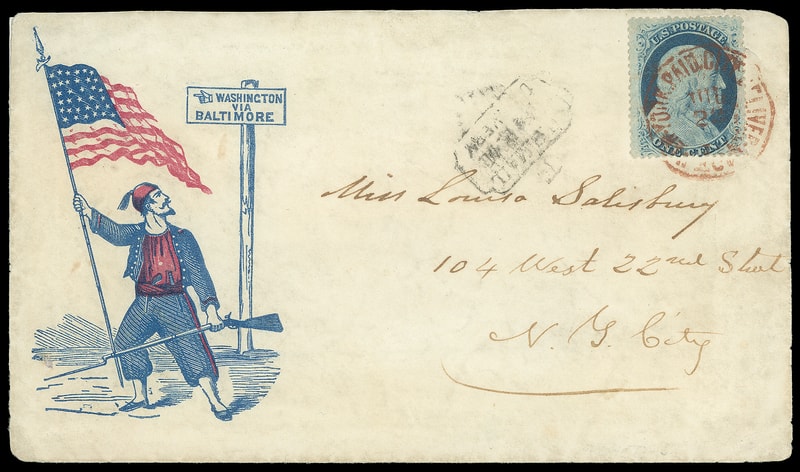 WASHINGTON
VIA
BALTIMORE
U.S. POSTAGE
ONE CENT
PAID
Miss Louisa Salisbury
104 West 22nd Street
N. Y. City